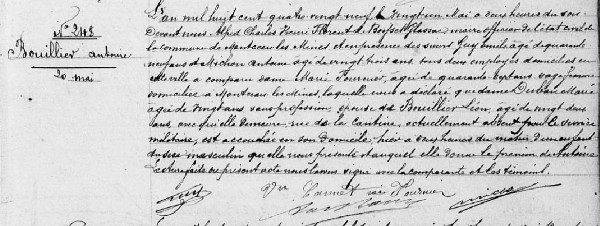 N° 248
Bouillier Antoine
20 mai
L'an mil huit cent quatre vingt neuf le vingt un Mai à onze heures du
Devant nous Alfred Charles Henri Florent de maire officier de l'état civil de
la commune de Montceau les Mines et en présence des sieurs Guy Emile âgé de quarante
neuf ans et Michon Antoine âgé de vingt trois ans tous deux employés domiciliés en
cette ville a comparu dame Marie Fournier, âgée de quarante sept ans sage femme
domiciliée à Montceau les Mines, laquelle nous a déclaré que dame Durban Marie
âgée de vingt ans sans profession épouse de Bouillier Léon, âgé de vingt deux
ans, avec qui elle demeure rue de la Cantine, actuellement absent pour le service
militaire, est accouchée en son domicile hier à onze heures du matin d'un enfant
du sexe masculin qu'elle nous présente et auquel elle donne le prénom de Antoine
Lecture faite du présent acte nous l'avons signé avec la comparante et les témoins.
Fournier